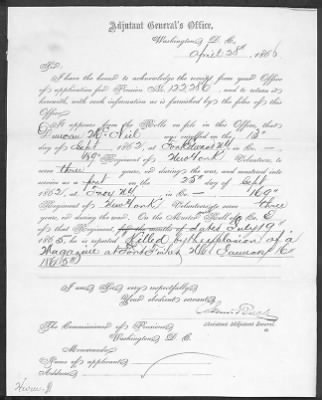 Adjutant General's Office,
Washington, D. C.
April 28th, 1866
Sir:
I have the honor to acknowledge the receipt from your Office
of application for Pension No. 122280, and to return it
herewith, with such information as is furnished by the files of this
Office.
It appears from the Rolls on file in this Office, that
Duncan McNeil was enrolled on the 13th
day of Sept, 1862, at Fort Edward NY, in Co. —
169th Regiment of New York Volunteers, to
serve three years, or during the war, and mustered into
service as a on the 25th day of Sept
1862, at Troy NY, in Co. — 169th
Regiment of New York Volunteers, to serve three
years, or during the war. On the Muster Roll of Co. E
of that Regiment, for the months of dated July 19th
1865, he is reported Killed by the explosion of a
Magazine at Fort Fisher NC January 16
1865
I am, Sir, very respectfully,
Your obedient servant,
Assistant Adjutant General.
The Commissioner of Pensions,
Washington, D. C.
Memoranda:
Name of applicant,
Address,